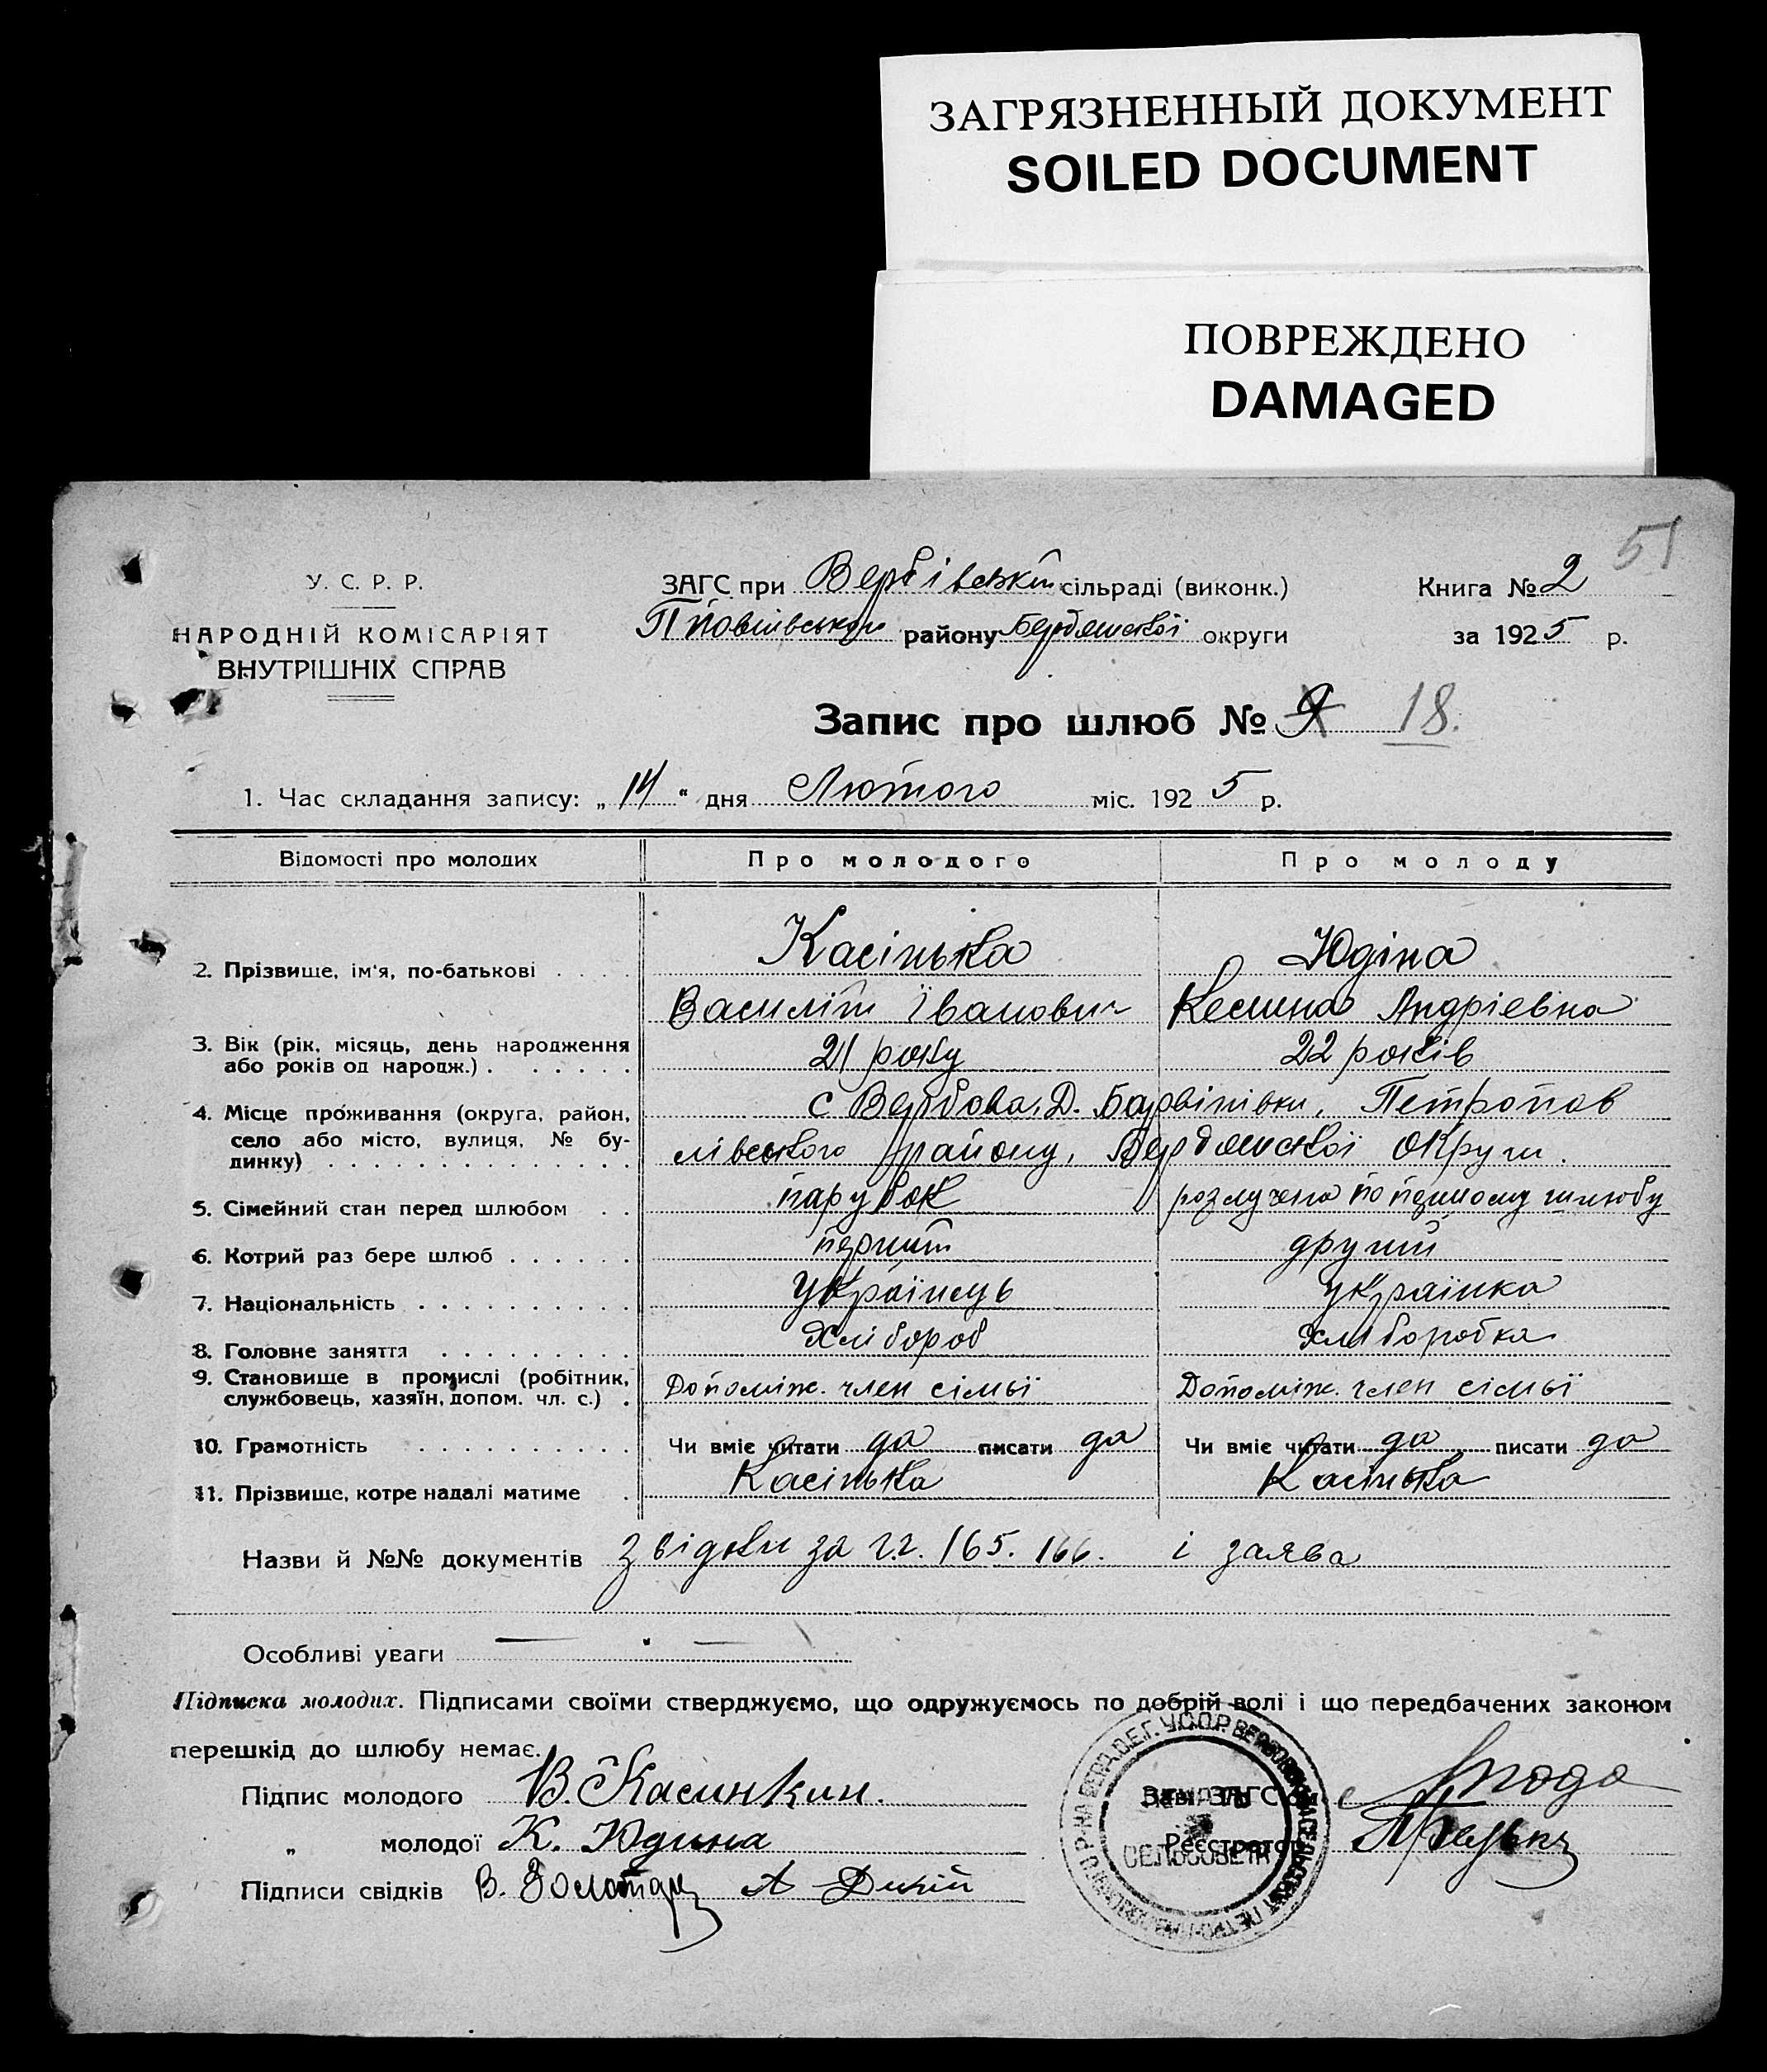 ЗАГРЯЗНЕННЫЙ ДОКУМЕНТ
SOILED DOCUMENT
ПОВРЕЖДЕНО
DAMAGED
51
У. С. Р. Р.
НАРОДНІЙ КОМІСАРІЯТ
ВНУТРІШНІХ СПРАВ
ЗАГС при Вербівській сільраді (виконк.)
району Бердянської округи
Книга № 2
за 1925 р.
Запис про шлюб № 9 18.
1. Час складання запису: „ 14 “ дня Лютого міс. 1925 р.
Відомості про молодих Про молодого Про молоду
2. Прізвище, ім'я, по-батькові . . . . Касінька Юдіна
Василій Іванович Ксенья Андріевна
3. Вік (рік, місяць, день народження або років од народж.) . . . . . . 21 року 22 років
4. Місце проживання (округа, район, село або місто, вулиця, № будинку) . . . . . с Вербова, Д. Барвінівки, Петропав
лівського району, Бердянської округи.
5. Сімейний стан перед шлюбом . . парубок розлучена по першому шлюбу
6. Котрий раз бере шлюб . . . . . . перший другий
7. Національність . . . . . . . . . . українець українка
8. Головне заняття . . . . . . . . . хлібороб хлібороbка
9. Становище в промислі (робітник, службовець, хазяїн, допом. чл. с.) . Допоміж. член сімьї Допоміж. член сімьї
10. Грамотність . . . . . . . . . . Чи вміє читати да писати да Чи вміє читати да писати да
11. Прізвище, котре надалі матиме . Касінька Касінька
Назви й №№ документів звідки за г.г. 165. 166. і заява
Особливі уваги
Підписка молодих. Підписами своїми стверджуємо, що одружуємось по добрій волі і що передбачених законом
перешкід до шлюбу немає.
Підпис молодого В. Касинкин.
Зав. ЗАГС'ом
„ молодої К. Юдина
Реєстратор
Підписи свідків В. А Дикій